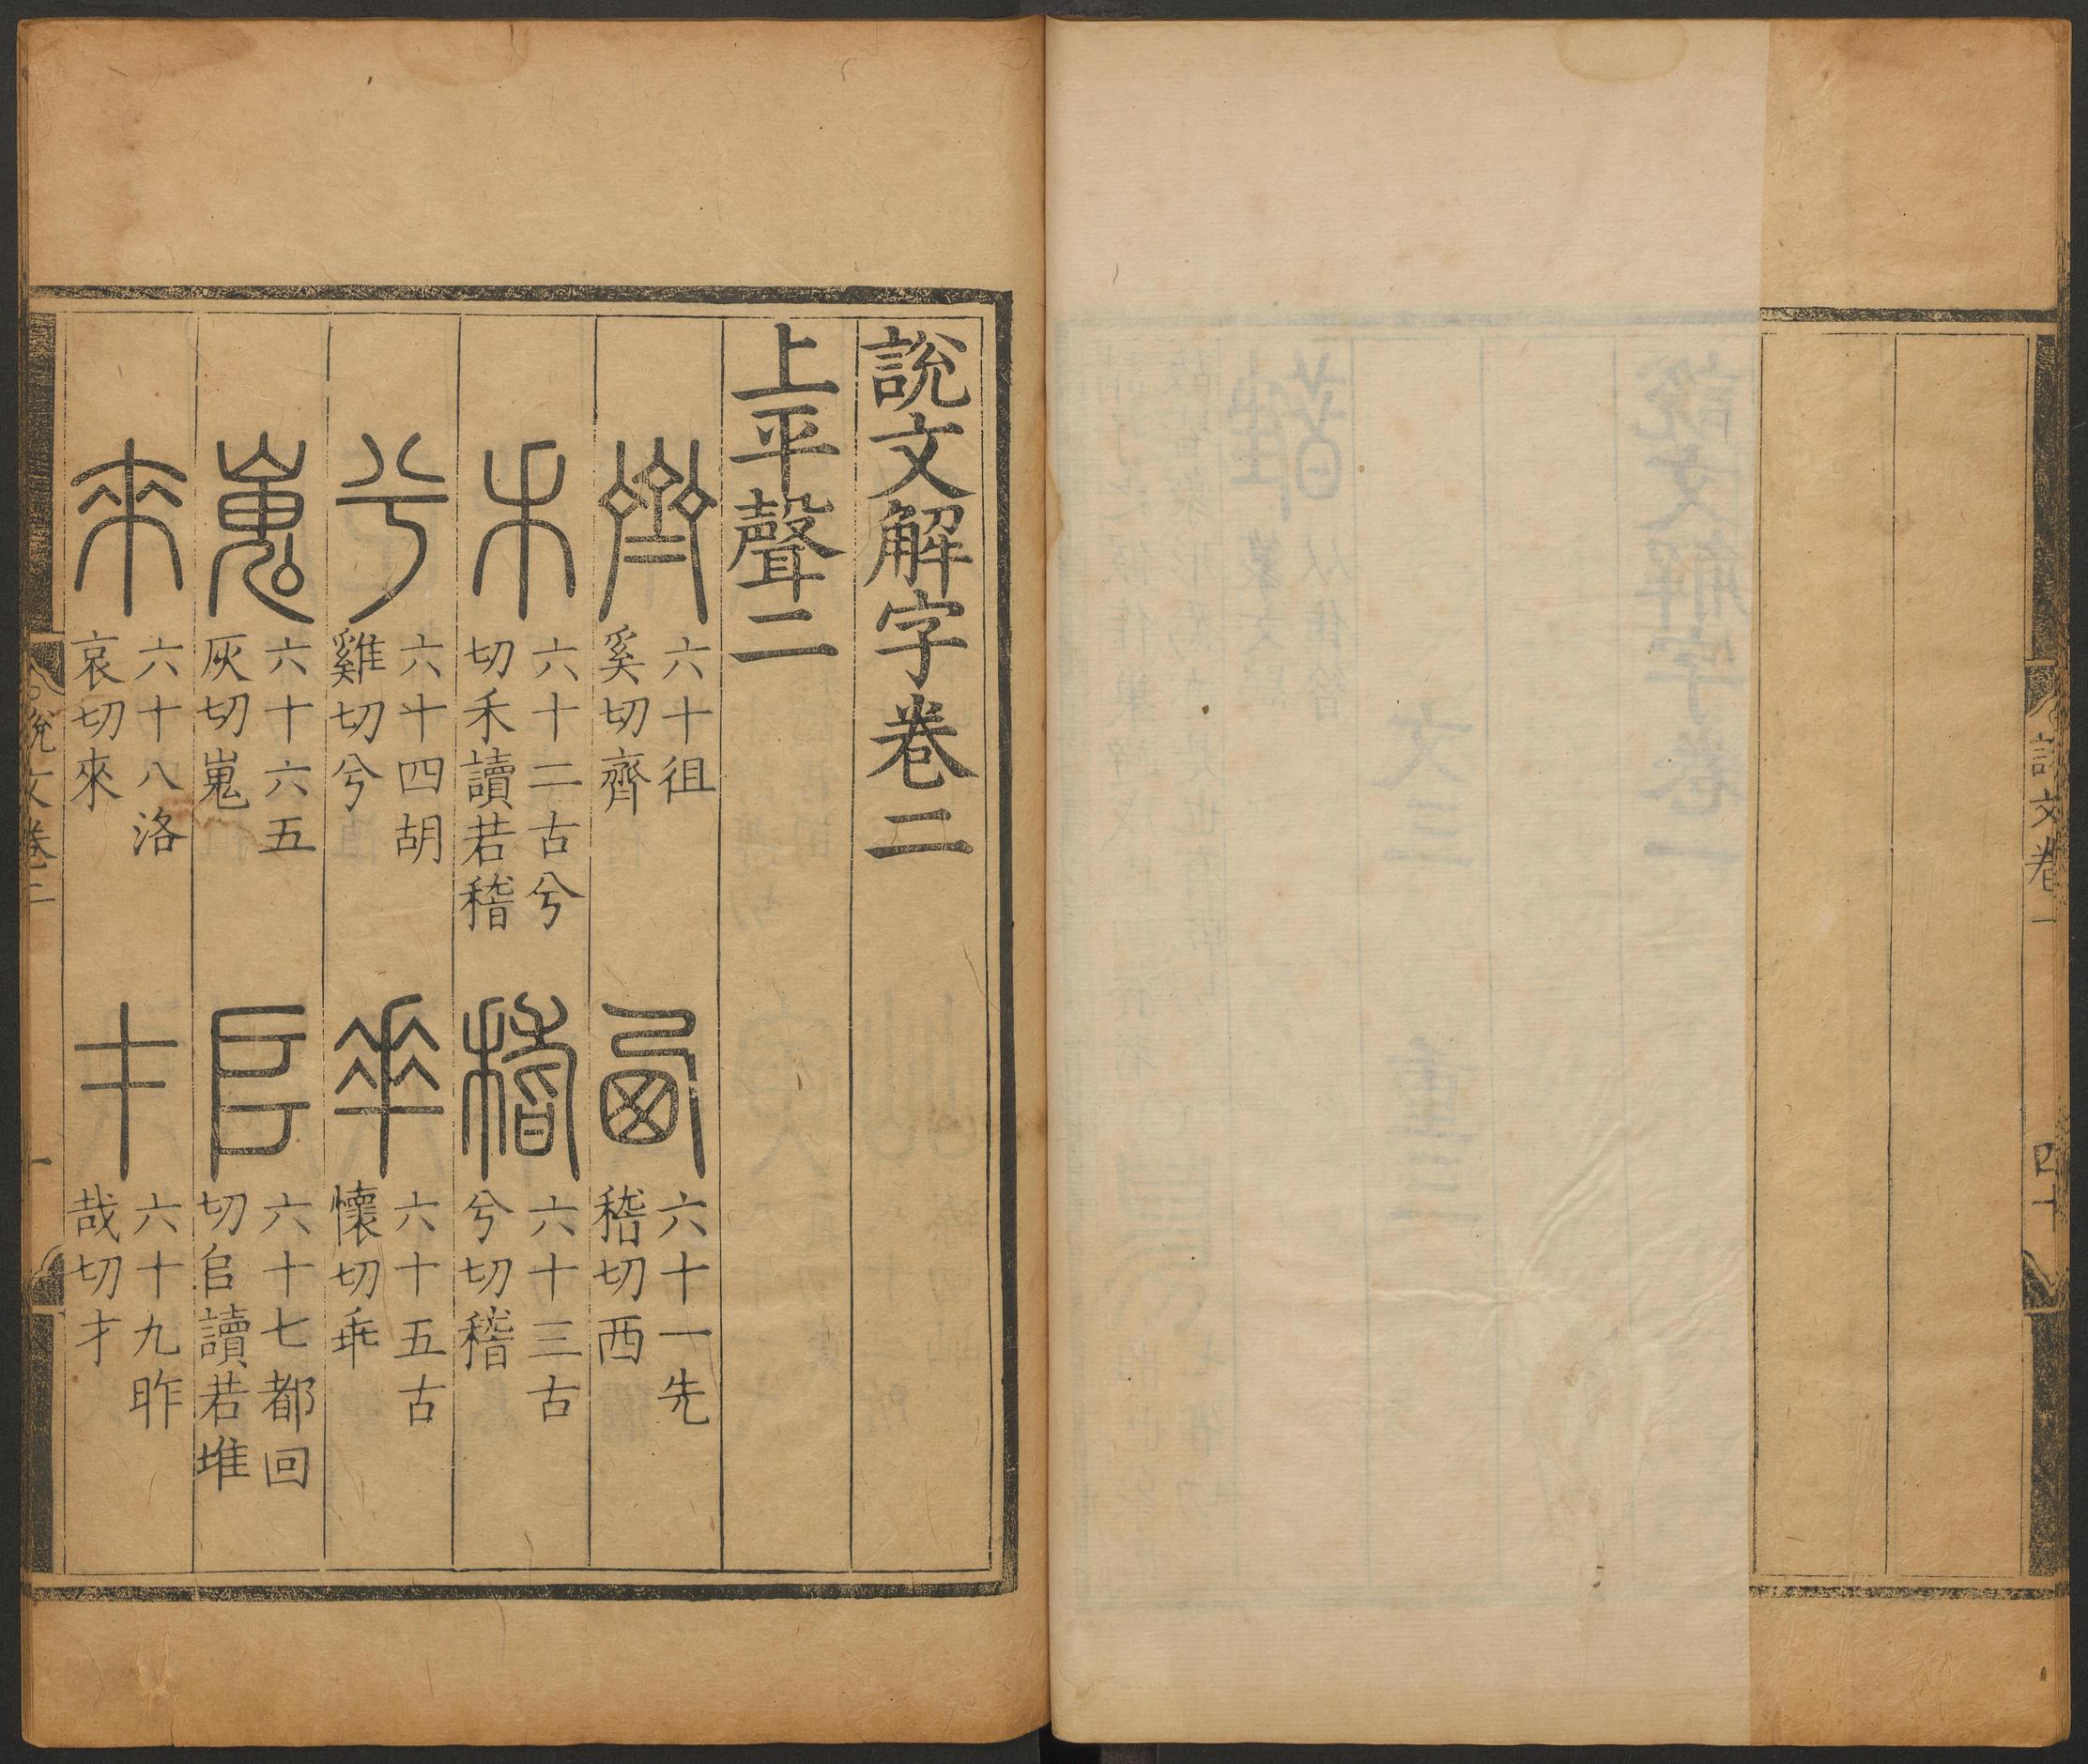 說文卷一
四十
說文解字卷二
上平聲二
齊 六十徂奚切齊
西 六十一先稽切西
禾 六十二古兮切禾讀若稽
稽 六十三古兮切稽
兮 六十四胡雞切兮
乖 六十五古懷切乖
嵬 六十六五灰切嵬
𠂤 六十七都回切𠂤讀若堆
來 六十八洛哀切來
才 六十九昨哉切才
說文卷二
一